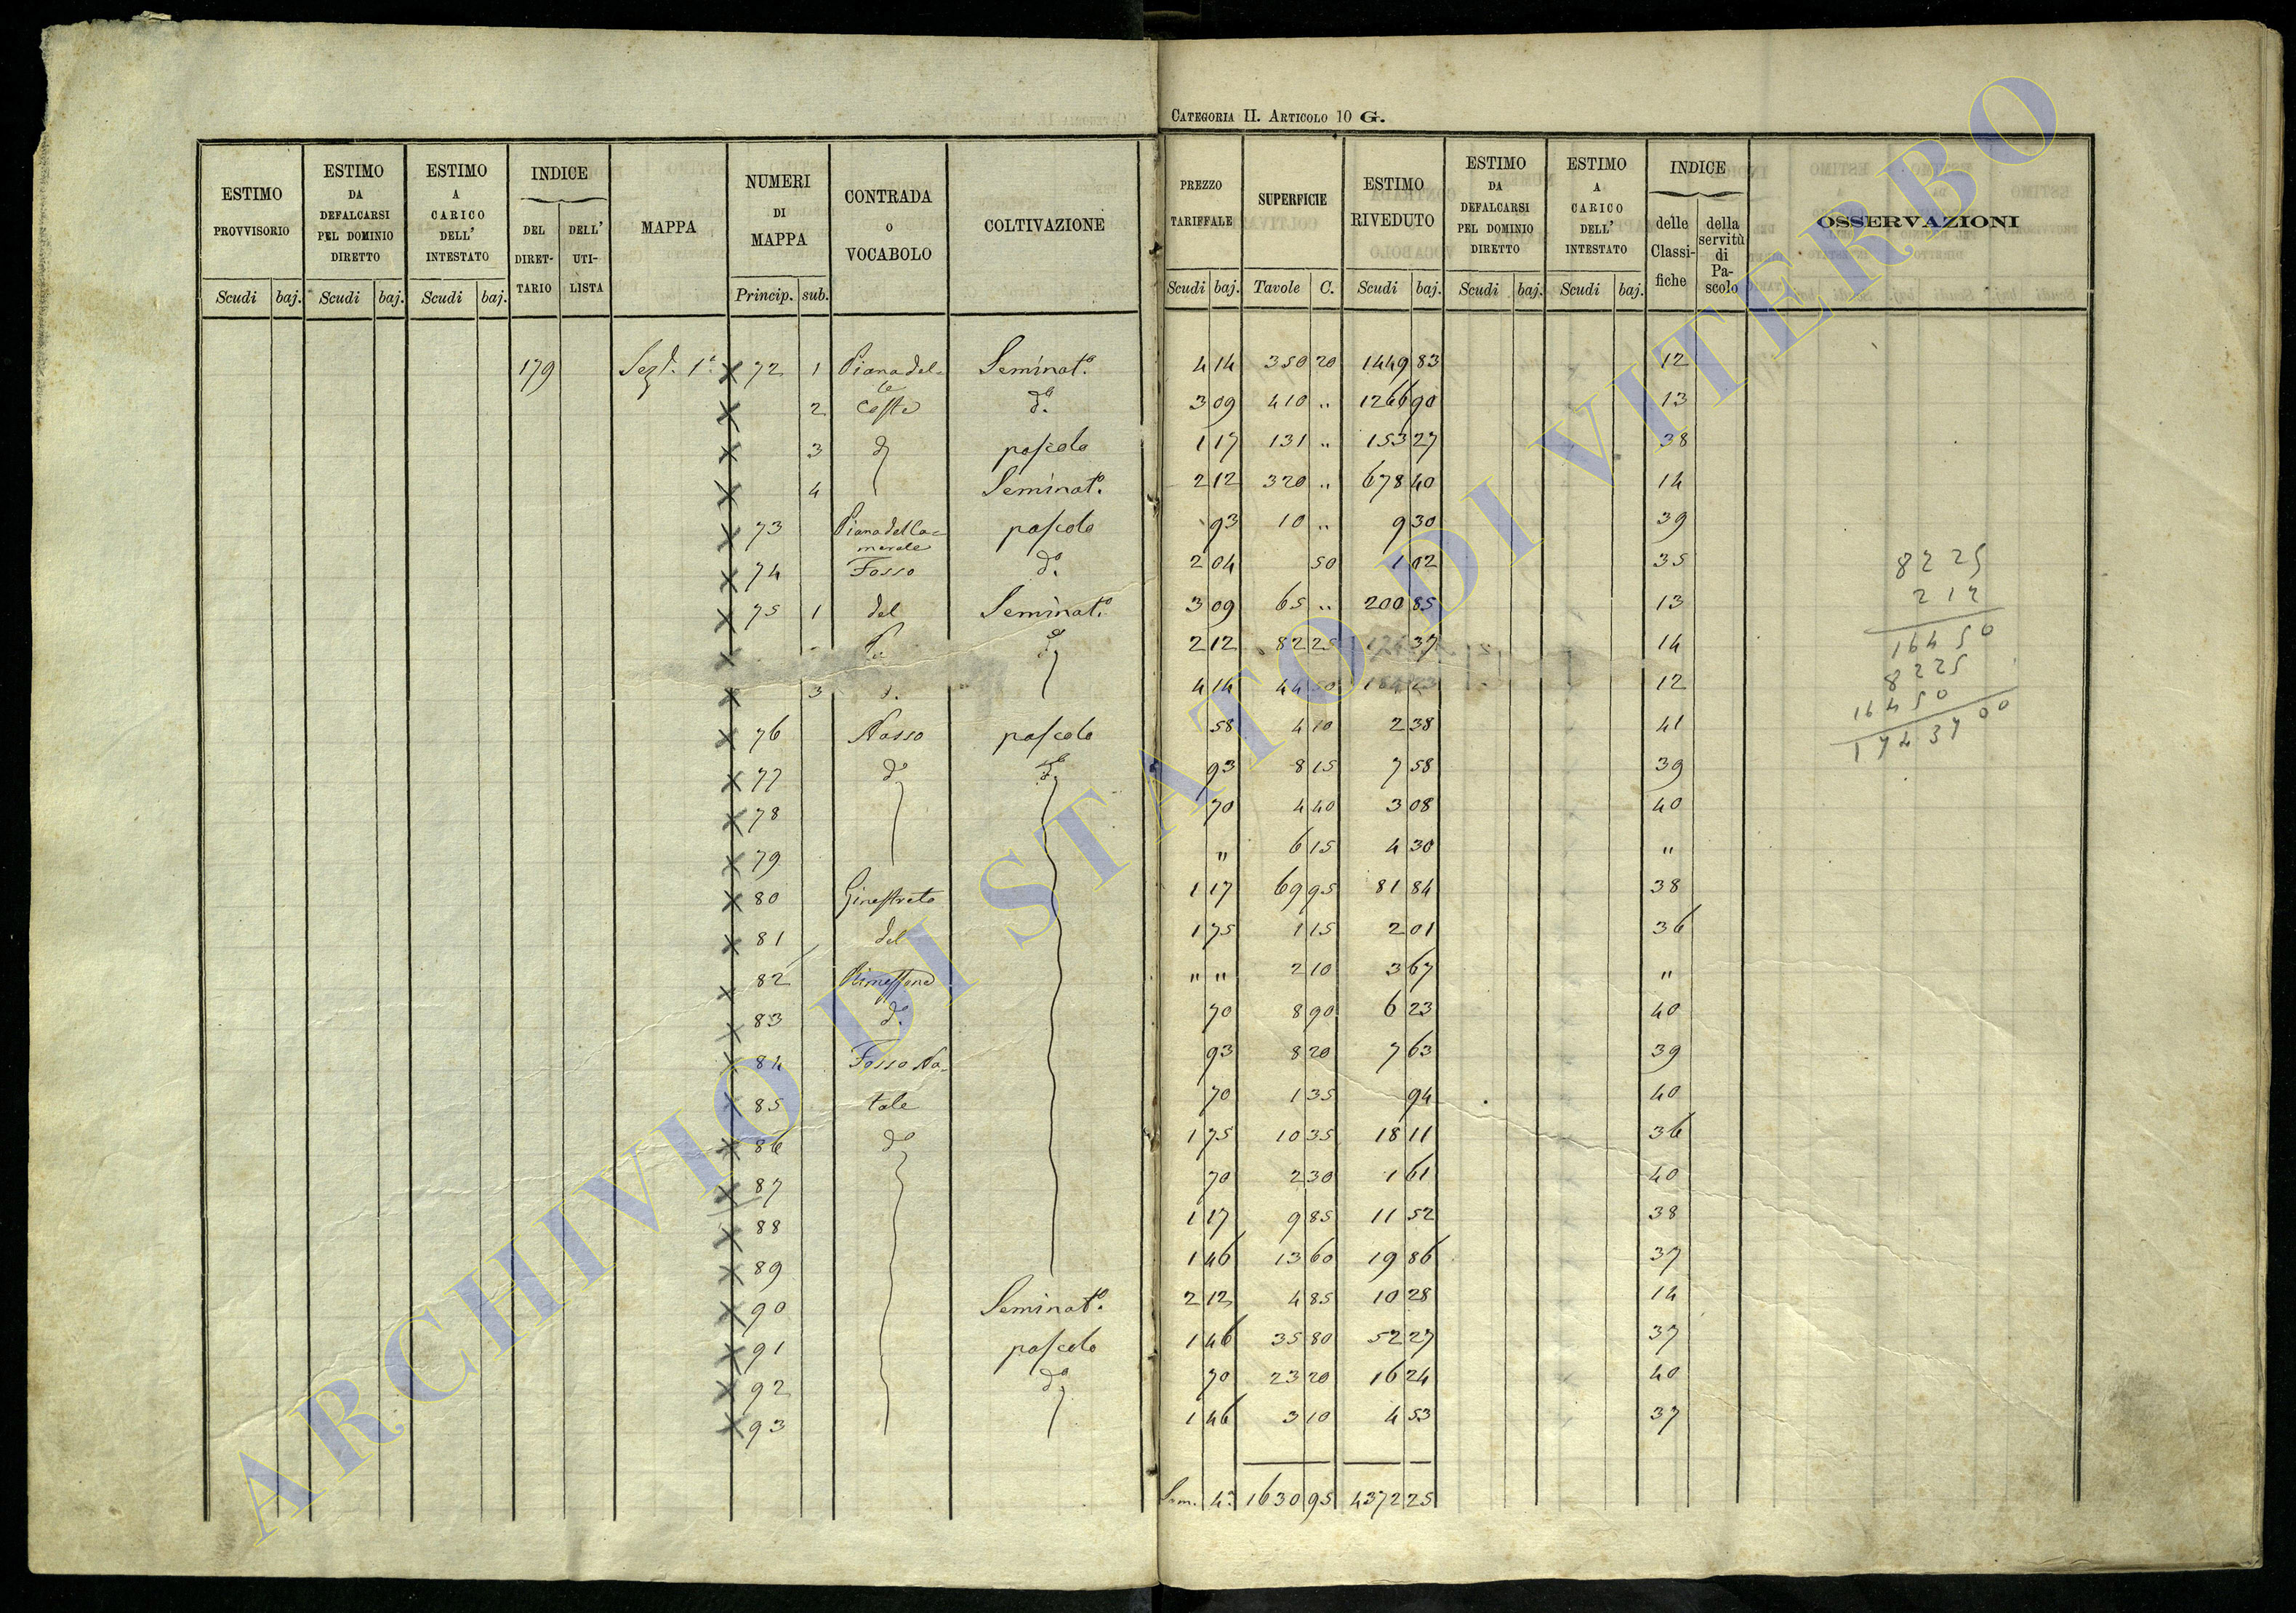 CATEGORIA II. ARTICOLO 10 G.
ESTIMO PROVVISORIO | ESTIMO DA DEFALCARSI PEL DOMINIO DIRETTO | ESTIMO A CARICO DELL' INTESTATO | INDICE | MAPPA | NUMERI DI MAPPA | CONTRADA O VOCABOLO | COLTIVAZIONE | PREZZO TARIFFALE | SUPERFICIE | ESTIMO RIVEDUTO | ESTIMO DA DEFALCARSI PEL DOMINIO DIRETTO | ESTIMO A CARICO DELL' INTESTATO | INDICE | OSSERVAZIONI
DEL DIRET-TARIO | DELL' UTI-LISTA | delle Classi-fiche | della servitù di Pa-scolo
Scudi | baj. | Scudi | baj. | Scudi | baj. | Princip. | sub. | Scudi | baj. | Tavole | C. | Scudi | baj. | Scudi | baj. | Scudi | baj.
179 Sez. 1ª X 72 1 Piana del- Seminat.º 4 14 350 20 1449 83 12
X 2 le Coste d.º 3 09 410 " 1266 90 13
X 3 d pascolo 1 17 131 " 153 27 38
X 4 Seminat.º 2 12 320 " 678 40 14
X 73 Piana del Ca= merale pascolo 93 10 " 9 30 39
X 74 Fosso d.º 2 04 50 1 02 35
X 75 1 del Seminat.º 3 09 65 " 200 85 13
X d 2 12 82 25 174 37 14
X 3 d. 4 14 44 50 184 23 12
X 76 Nasso pascolo 58 4 10 2 38 41
X 77 d.º d.º 93 8 15 7 58 39
X 78 70 4 40 3 08 40
X 79 " 6 15 4 30 "
X 80 Ginestreto 1 17 69 95 81 84 38
X 81 del 1 75 1 15 2 01 36
X 82 Rimessone " " 2 10 3 67 "
X 83 d.º 70 8 90 6 23 40
X 84 Fosso Na- 93 8 20 7 63 39
X 85 tale 70 1 35 94 40
X 86 d.º 1 75 10 35 18 11 36
X 87 70 2 30 1 61 40
X 88 1 17 9 85 11 52 38
X 89 1 46 13 60 19 86 37
X 90 Seminat.º 2 12 4 85 10 28 14
X 91 pascolo 1 46 35 80 52 27 37
X 92 d.º 70 23 20 16 24 40
X 93 1 46 3 10 4 53 37
Som. 1630 95 4372 25
8225
212
16450
8225
16450
1743700
ARCHIVIO DI STATO DI VITERBO